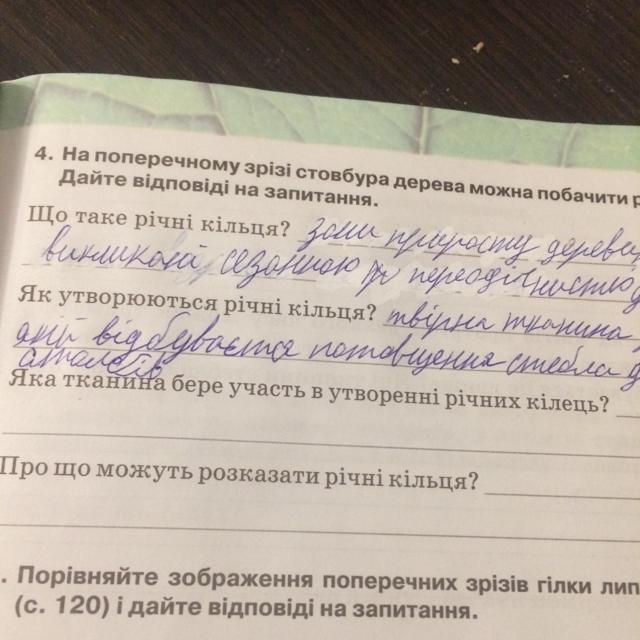 4. На поперечному зрізі стовбура дерева можна побачити р
Дайте відповіді на запитання.
Що таке річні кільця? зони приросту дереви
викликані сезонною періодичністю
Як утворюються річні кільця? твірна тканина
якій відбувається потовщення стебла
Яка тканина бере участь в утворенні річних кілець?
Про що можуть розказати річні кільця?
. Порівняйте зображення поперечних зрізів гілки лип
(с. 120) і дайте відповіді на запитання.